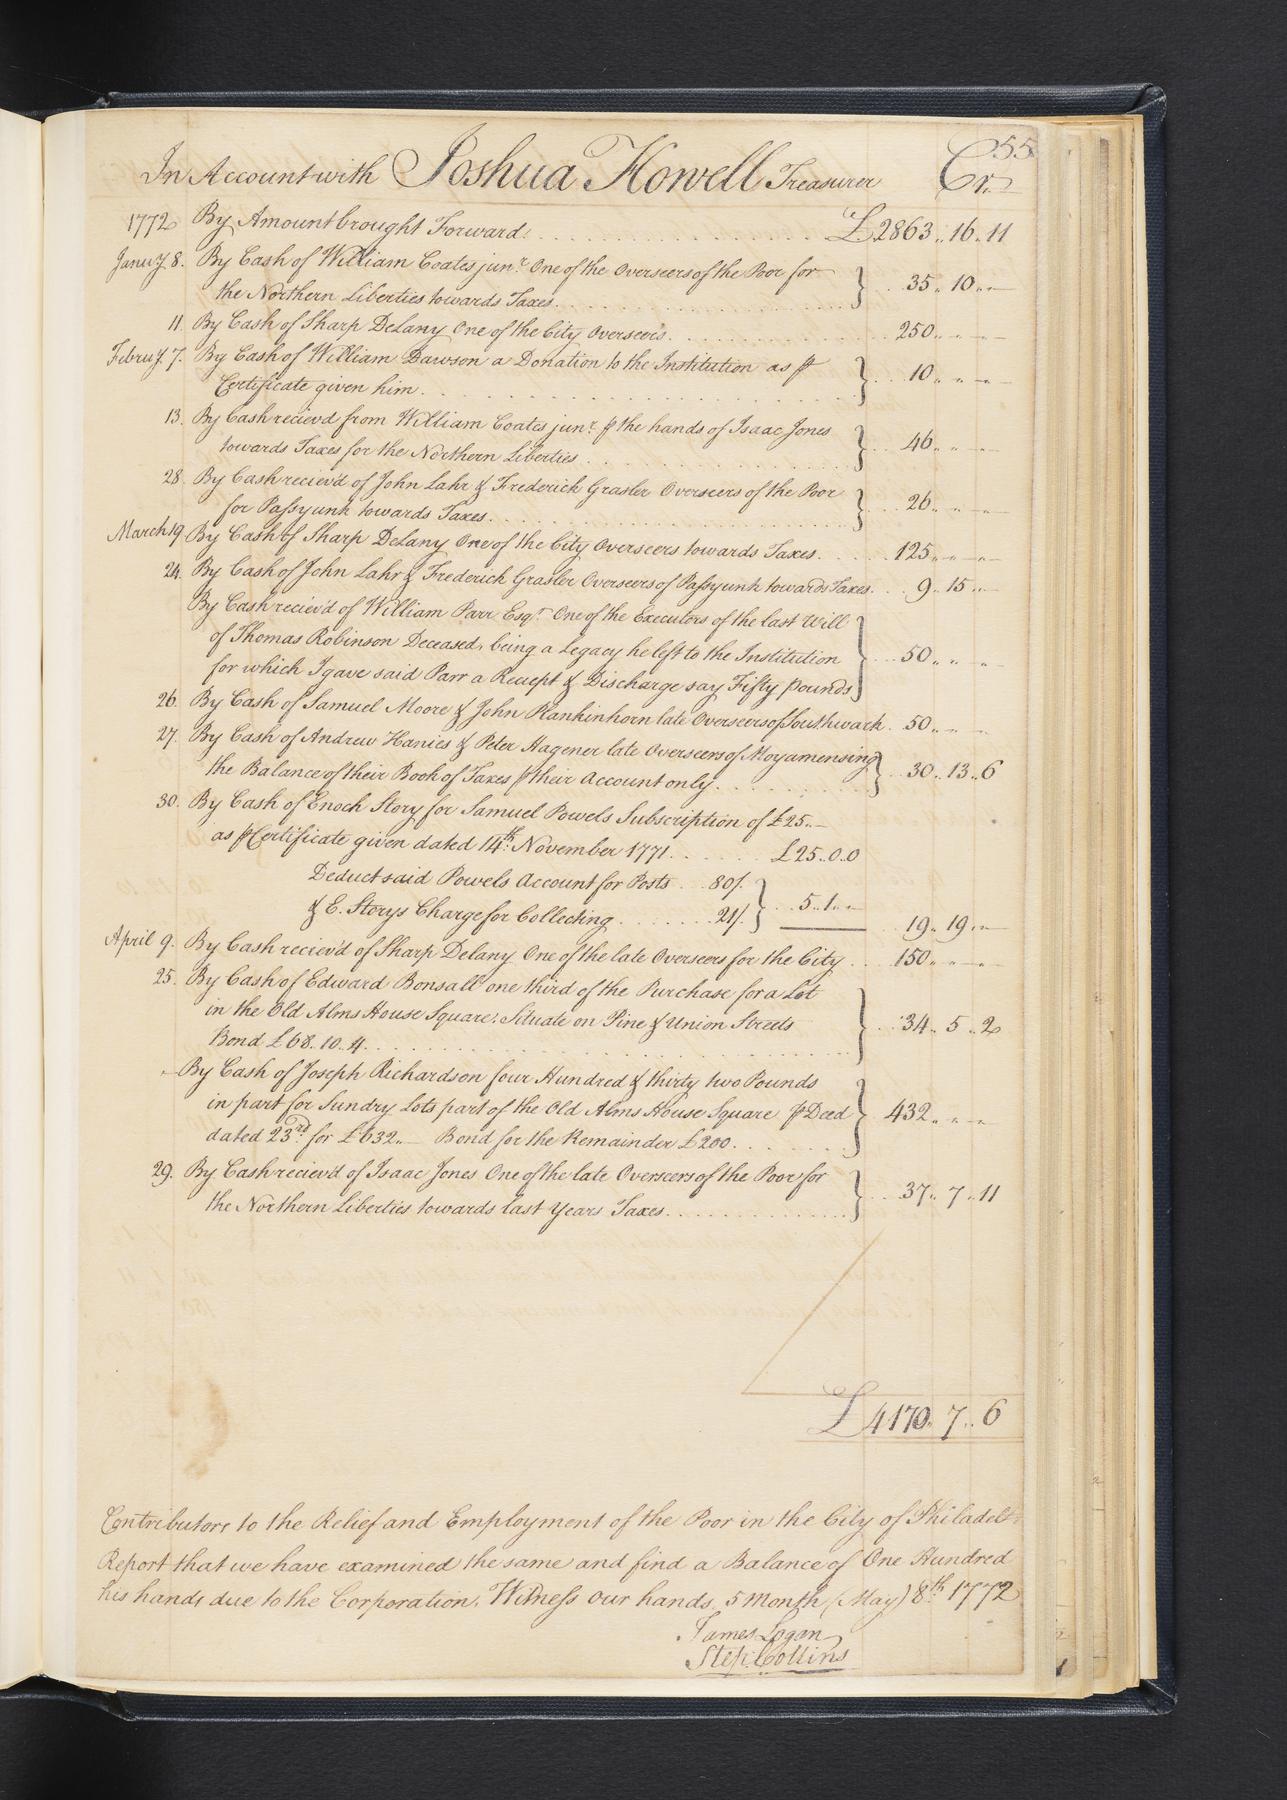 55
In Account with Joshua Howell Treasurer Cr.
1772 By Amount brought Forward. £2863..16..11
Janu.y 8. By Cash of William Coates jun.r One of the Overseers of the Poor for
the Northern Liberties towards Taxes. 35..10..—
11. By Cash of Sharp Delany One of the City Overseers. 250..—..—
Febru.y 7. By Cash of William Dawson a Donation to the Institution as ⅌
Certificate given him. 10..—..—
13. By Cash reciev'd from William Coates jun.r ⅌ the hands of Isaac Jones
towards Taxes for the Northern Liberties. 46..—..—
28. By Cash reciev'd of John Lahr & Frederick Grasler Overseers of the Poor
for Passyunk towards Taxes. 26..—..—
March 19 By Cash of Sharp Delany One of the City Overseers towards Taxes. 125..—..—
24. By Cash of John Lahr & Frederick Grasler Overseers of Passyunk towards Taxes. 9..15..—
By Cash reciev'd of William Parr Esq.r One of the Executors of the last Will
of Thomas Robinson Deceased, being a Legacy he left to the Institution
for which I gave said Parr a Reciept & Discharge say Fifty Pounds 50..—..—
26. By Cash of Samuel Moore & John Rankinhorn late Overseers of Southwark. 50..—..—
27. By Cash of Andrew Hanies & Peter Hagener late Overseers of Moyamensing
the Balance of their Book of Taxes ⅌ their Account only. 30..13..6
30. By Cash of Enoch Story for Samuel Powels Subscription of £25..—
as ⅌ Certificate given dated 14th November 1771. £25..0..0
Deduct said Powels Account for Posts 80/.
& E. Storys Charge for Collecting. 21/. 5..1..— 19..19..—
April 9. By Cash reciev'd of Sharp Delany One of the late Overseers for the City 150..—..—
25. By Cash of Edward Bonsall one third of the Purchase for a Lot
in the Old Alms House Square, Situate on Pine & Union Streets
Bond £68..10..4. 34..5..2
—By Cash of Joseph Richardson four Hundred & thirty two Pounds
in part for Sundry Lots part of the Old Alms House Square ⅌ Deed
dated 23rd for £632..— Bond for the Remainder £200. 432..—..—
29. By Cash reciev'd of Isaac Jones One of the late Overseers of the Poor for
the Northern Liberties towards last Years Taxes. 37..7..11
£4170..7..6
Contributors to the Relief and Employment of the Poor in the City of Philadela
Report that we have examined the same and find a Balance of One Hundred
his hands due to the Corporation. Witness our hands. 5 Month (May) 8th 1772
James Logan
Step. Collins